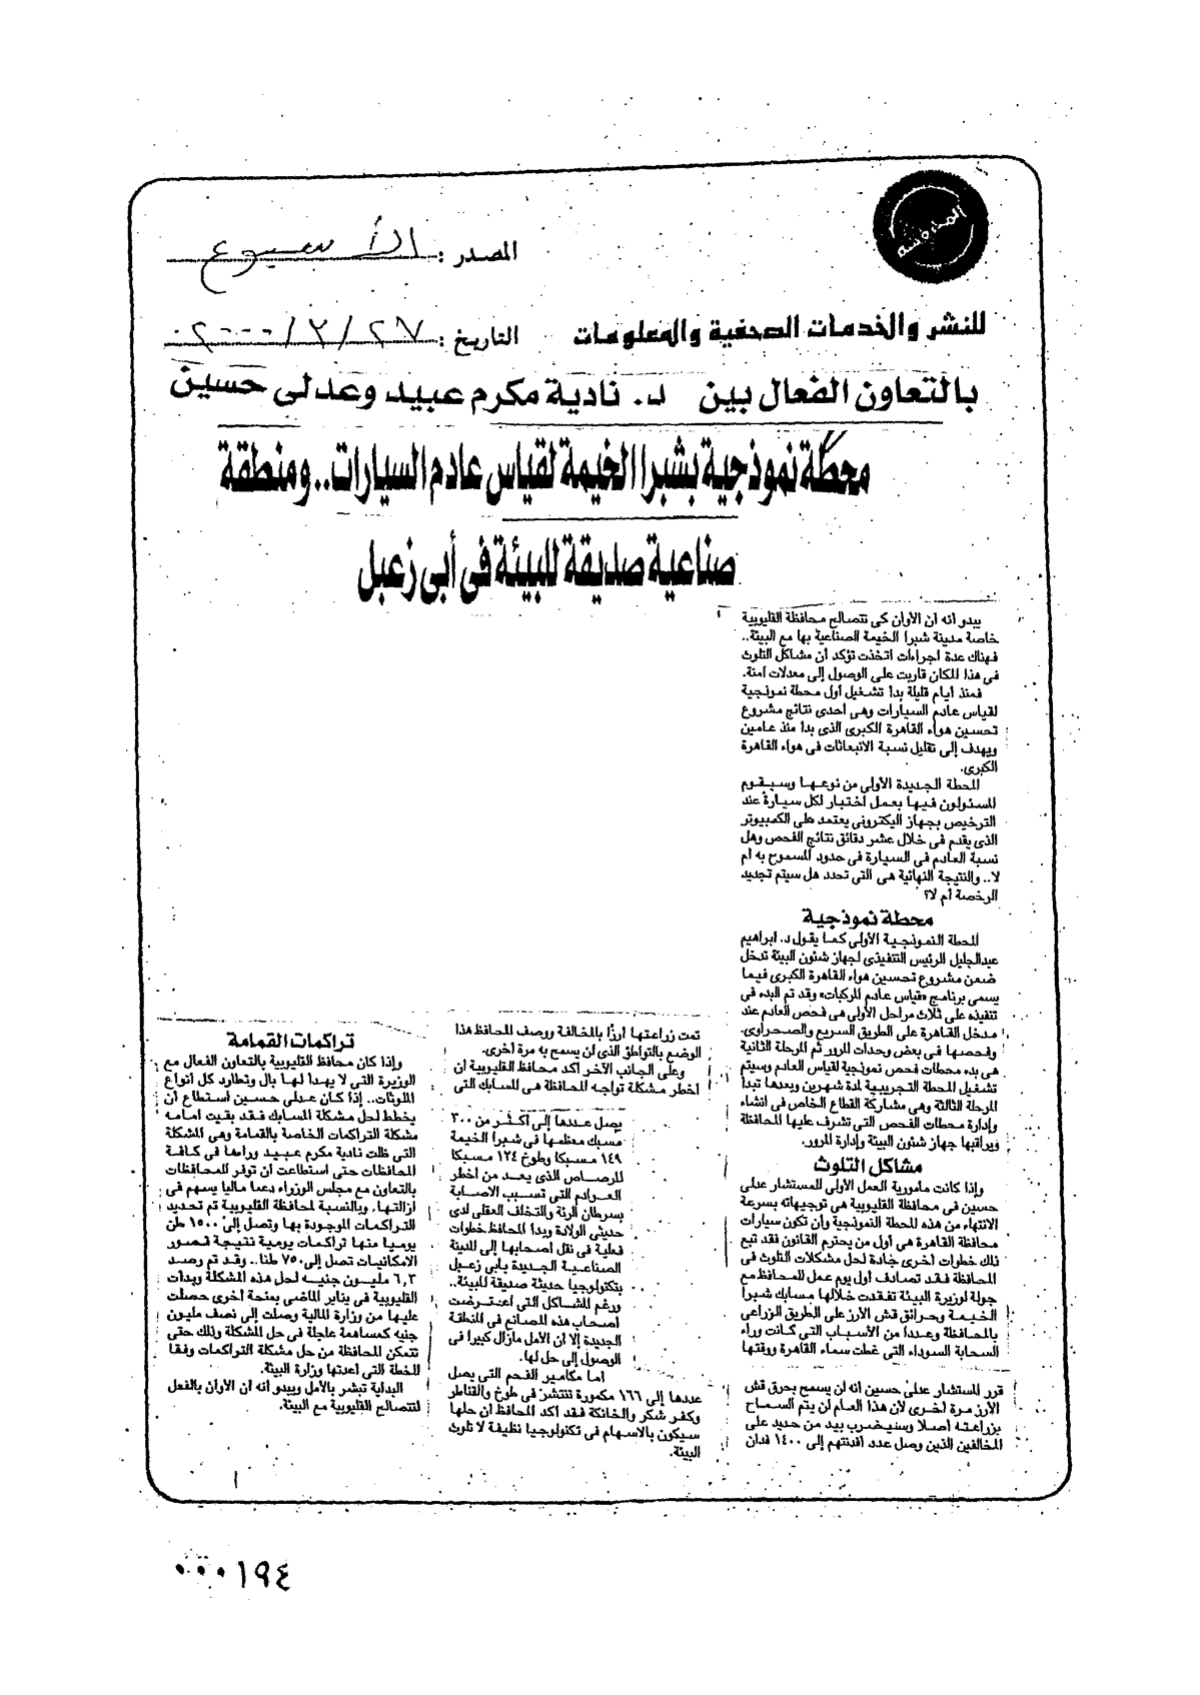 المصدر : الأسبوع
للنشر والخدمات الصحفية والمعلومات
التاريخ : ٢٧/٣/٢٠٠٠
بالتعاون الفعال بين د. نادية مكرم عبيد وعدلى حسين
محطة نموذجية بشبرا الخيمة لقياس عادم السيارات.. ومنطقة
صناعية صديقة للبيئة فى أبى زعبل
يبدو أنه آن الأوان كى تتصالح محافظة القليوبية
خاصة مدينة شبرا الخيمة الصناعية بها مع البيئة..
فهناك عدة اجراءات اتخذت تؤكد أن مشاكل التلوث
فى هذا المكان قاربت على الوصول إلى معدلات آمنة.
فمنذ أيام قليلة بدأ تشغيل أول محطة نموذجية
لقياس عادم السيارات وهى احدى نتائج مشروع
تحسين هواء القاهرة الكبرى الذى بدأ منذ عامين
ويهدف إلى تقليل نسبة الانبعاثات فى هواء القاهرة
الكبرى.
المحطة الجديدة الأولى من نوعها وسيقوم
المسئولون فيها بعمل اختبار لكل سيارة عند
الترخيص بجهاز اليكترونى يعتمد على الكمبيوتر
الذى يقدم فى خلال عشر دقائق نتائج الفحص وهل
نسبة العادم فى السيارة فى حدود المسموح به أم
لا.. والنتيجة النهائية هى التى تحدد هل سيتم تجديد
الرخصة أم لا؟
محطة نموذجية
المحطة النموذجية الأولى كما يقول د. ابراهيم
عبدالجليل الرئيس التنفيذى لجهاز شئون البيئة تدخل
ضمن مشروع تحسين هواء القاهرة الكبرى فيما
يسمى برنامج «قياس عادم المركبات» وقد تم البدء فى
تنفيذه على ثلاث مراحل الأولى هى فحص العادم عند
مدخل القاهرة على الطريق السريع والصحراوى.
وفحصها فى بعض وحدات المرور ثم المرحلة الثانية
هى بدء محطات فحص نموذجية لقياس العادم وسيتم
تشغيل المحطة التجريبية لمدة شهرين وبعدها تبدأ
المرحلة الثالثة وهى مشاركة القطاع الخاص فى انشاء
وإدارة محطات الفحص التى تشرف عليها المحافظة
ويراقبها جهاز شئون البيئة وإدارة المرور.
مشاكل التلوث
وإذا كانت مأمورية العمل الأولى للمستشار عدلى
حسين فى محافظة القليوبية هى توجيهاته بسرعة
الانتهاء من هذه المحطة النموذجية وأن تكون سيارات
محافظة القاهرة هى أول من يحترم القانون فقد تبع
ذلك خطوات أخرى جادة لحل مشكلات التلوث فى
المحافظة فقد تصادف أول يوم عمل للمحافظ مع
جولة لوزيرة البيئة تفقدت خلالها مسابك شبرا
الخيمة وحرائق قش الأرز على الطريق الزراعى
بالمحافظة وعددا من الأسباب التى كانت وراء
السحابة السوداء التى غطت سماء القاهرة ووقتها
قرر المستشار عدلى حسين أنه لن يسمح بحرق قش
الأرز مرة أخرى لأن هذا العام لن يتم السماح
بزراعته أصلا وسيضرب بيد من حديد على
المخالفين الذين وصل عدد أفدنتهم إلى ١٤٠٠ فدان
تمت زراعتها أرزًا بالمخالفة ووصف المحافظ هذا
الوضع بالتواطؤ الذى لن يسمح به مرة أخرى.
وعلى الجانب الآخر أكد محافظ القليوبية أن
أخطر مشكلة تواجه المحافظة هى المسابك التى
يصل عددها إلى أكثر من ٣٠٠
مسبك معظمها فى شبرا الخيمة
١٤٩ مسبكا وطوخ ١٢٤ مسبكا
للرصاص الذى يعد من أخطر
العوادم التى تسبب الاصابة
بسرطان الرئة والتخلف العقلى لدى
حديثى الولادة وبدأ المحافظ خطوات
فعلية فى نقل أصحابها إلى المدينة
الصناعية الجديدة بأبى زعبل
بتكنولوجيا حديثة صديقة للبيئة..
ورغم المشاكل التى اعترضت
أصحاب هذه المصانع فى المنطقة
الجديدة إلا أن الأمل مازال كبيرا فى
الوصول إلى حل لها.
أما مكامير الفحم التى يصل
عددها إلى ١٦٦ مكمورة تنتشر فى طوخ والقناطر
وكفر شكر والخانكة فقد أكد المحافظ أن حلها
سيكون بالاسهام فى تكنولوجيا نظيفة لا تلوث
البيئة.
تراكمات القمامة
وإذا كان محافظ القليوبية بالتعاون الفعال مع
الوزيرة التى لا يهدأ لها بال وتطارد كل أنواع
الملوثات.. إذا كان عدلى حسين استطاع أن
يخطط لحل مشكلة المسابك فقد بقيت أمامه
مشكلة التراكمات الخاصة بالقمامة وهى المشكلة
التى ظلت نادية مكرم عبيد وراءها فى كافة
المحافظات حتى استطاعت أن توفر للمحافظات
بالتعاون مع مجلس الوزراء دعما ماليا يسهم فى
ازالتها. وبالنسبة لمحافظة القليوبية تم تحديد
التراكمات الموجودة بها وتصل إلى ١٥٠٠ طن
يوميا منها تراكمات يومية نتيجة قصور
الامكانيات تصل إلى ٧٥٠ طنا.. وقد تم رصد
٦,٣ مليون جنيه لحل هذه المشكلة وبدأت
القليوبية فى يناير الماضى بمنحة أخرى حصلت
عليها من وزارة المالية وصلت إلى نصف مليون
جنيه كمساهمة عاجلة فى حل المشكلة وذلك حتى
تتمكن المحافظة من حل مشكلة التراكمات وفقا
للخطة التى أعدتها وزارة البيئة.
البداية تبشر بالأمل ويبدو أنه آن الأوان بالفعل
لتتصالح القليوبية مع البيئة.
٠٠٠١٩٤